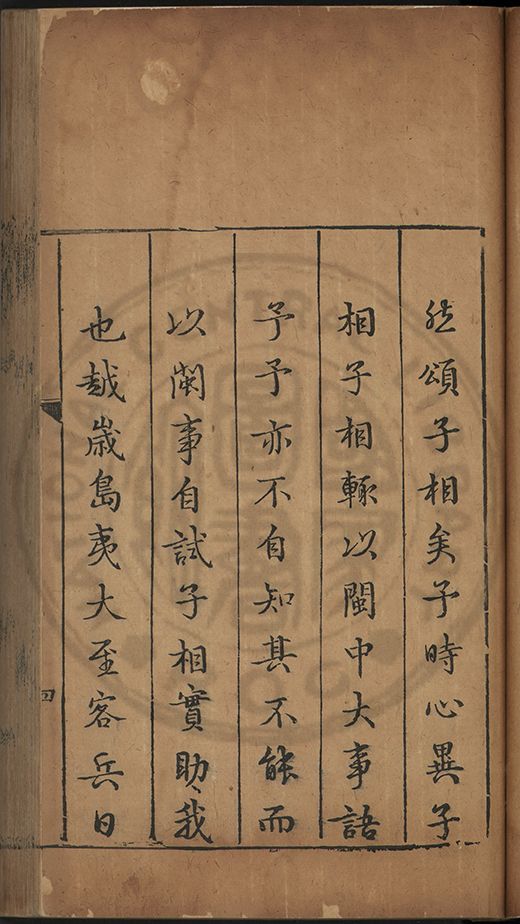 然頌子相矣予時心異子
相子相輒以閩中大事語
予予亦不自知其不能而
以閩事自試子相實助我
也越歲島夷大至客兵日
四